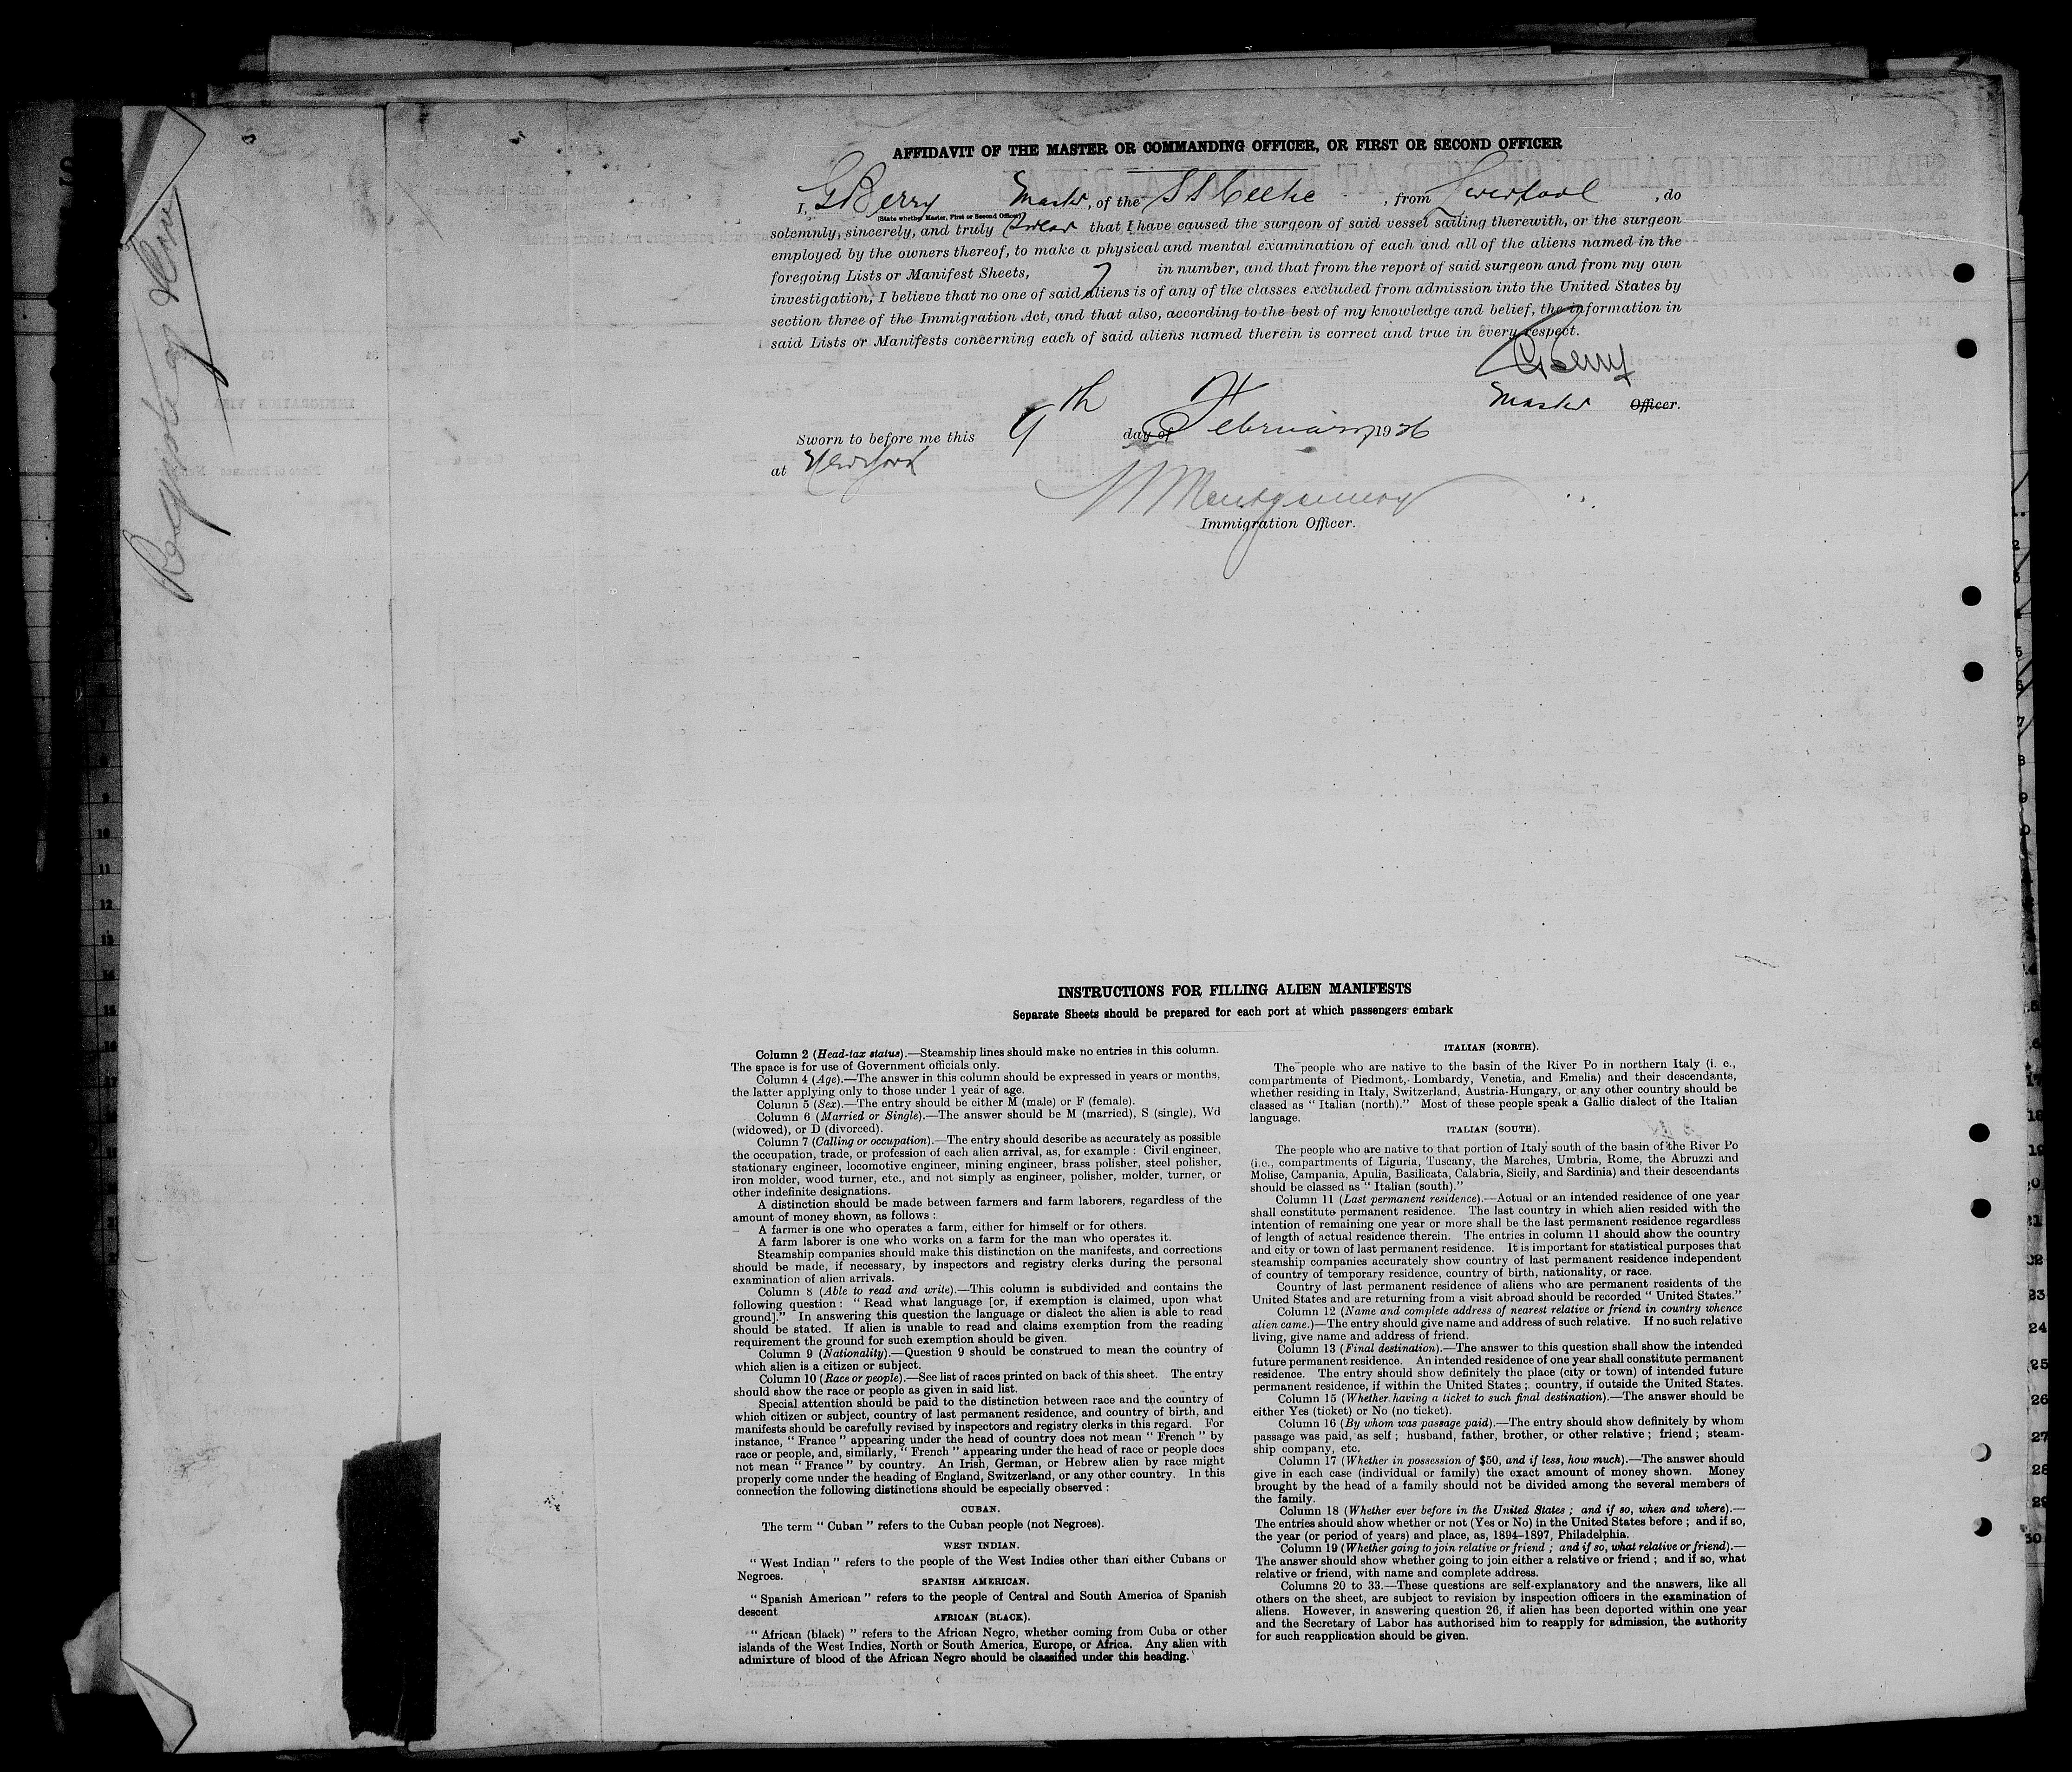 AFFIDAVIT OF THE MASTER OR COMMANDING OFFICER, OR FIRST OR SECOND OFFICER
I, G Berry Master, of the S S Celtic, from Liverpool, do
(State whether Master, First or Second Officer)
solemnly, sincerely, and truly swear that I have caused the surgeon of said vessel sailing therewith, or the surgeon
employed by the owners thereof, to make a physical and mental examination of each and all of the aliens named in the
foregoing Lists or Manifest Sheets, 7 in number, and that from the report of said surgeon and from my own
investigation, I believe that no one of said aliens is of any of the classes excluded from admission into the United States by
section three of the Immigration Act, and that also, according to the best of my knowledge and belief, the information in
said Lists or Manifests concerning each of said aliens named therein is correct and true in every respect.
G Berry
Master Officer.
Sworn to before me this 9th day of February 1926
at New York
Montgomery
Immigration Officer.
INSTRUCTIONS FOR FILLING ALIEN MANIFESTS
Separate Sheets should be prepared for each port at which passengers embark
Column 2 (Head-tax status).—Steamship lines should make no entries in this column.
The space is for use of Government officials only.
Column 4 (Age).—The answer in this column should be expressed in years or months,
the latter applying only to those under 1 year of age.
Column 5 (Sex).—The entry should be either M (male) or F (female).
Column 6 (Married or Single).—The answer should be M (married), S (single), Wd
(widowed), or D (divorced).
Column 7 (Calling or occupation).—The entry should describe as accurately as possible
the occupation, trade, or profession of each alien arrival, as, for example : Civil engineer,
stationary engineer, locomotive engineer, mining engineer, brass polisher, steel polisher,
iron molder, wood turner, etc., and not simply as engineer, polisher, molder, turner, or
other indefinite designations.
A distinction should be made between farmers and farm laborers, regardless of the
amount of money shown, as follows :
A farmer is one who operates a farm, either for himself or for others.
A farm laborer is one who works on a farm for the man who operates it.
Steamship companies should make this distinction on the manifests, and corrections
should be made, if necessary, by inspectors and registry clerks during the personal
examination of alien arrivals.
Column 8 (Able to read and write).—This column is subdivided and contains the
following question : " Read what language [or, if exemption is claimed, upon what
ground]." In answering this question the language or dialect the alien is able to read
should be stated. If alien is unable to read and claims exemption from the reading
requirement the ground for such exemption should be given.
Column 9 (Nationality).—Question 9 should be construed to mean the country of
which alien is a citizen or subject.
Column 10 (Race or people).—See list of races printed on back of this sheet. The entry
should show the race or people as given in said list.
Special attention should be paid to the distinction between race and the country of
which citizen or subject, country of last permanent residence, and country of birth, and
manifests should be carefully revised by inspectors and registry clerks in this regard. For
instance, " France " appearing under the head of country does not mean " French " by
race or people, and, similarly, " French " appearing under the head of race or people does
not mean " France " by country. An Irish, German, or Hebrew alien by race might
properly come under the heading of England, Switzerland, or any other country. In this
connection the following distinctions should be especially observed :
CUBAN.
The term " Cuban " refers to the Cuban people (not Negroes).
WEST INDIAN.
" West Indian " refers to the people of the West Indies other than either Cubans or
Negroes.
SPANISH AMERICAN.
" Spanish American " refers to the people of Central and South America of Spanish
descent
AFRICAN (BLACK).
" African (black) " refers to the African Negro, whether coming from Cuba or other
islands of the West Indies, North or South America, Europe, or Africa. Any alien with
admixture of blood of the African Negro should be classified under this heading.
ITALIAN (NORTH).
The people who are native to the basin of the River Po in northern Italy (i. e.,
compartments of Piedmont, Lombardy, Venetia, and Emelia) and their descendants,
whether residing in Italy, Switzerland, Austria-Hungary, or any other country should be
classed as " Italian (north)." Most of these people speak a Gallic dialect of the Italian
language.
ITALIAN (SOUTH).
The people who are native to that portion of Italy south of the basin of the River Po
(i.e., compartments of Liguria, Tuscany, the Marches, Umbria, Rome, the Abruzzi and
Molise, Campania, Apulia, Basilicata, Calabria, Sicily, and Sardinia) and their descendants
should be classed as " Italian (south)."
Column 11 (Last permanent residence).—Actual or an intended residence of one year
shall constitute permanent residence. The last country in which alien resided with the
intention of remaining one year or more shall be the last permanent residence regardless
of length of actual residence therein. The entries in column 11 should show the country
and city or town of last permanent residence. It is important for statistical purposes that
steamship companies accurately show country of last permanent residence independent
of country of temporary residence, country of birth, nationality, or race.
Country of last permanent residence of aliens who are permanent residents of the
United States and are returning from a visit abroad should be recorded " United States."
Column 12 (Name and complete address of nearest relative or friend in country whence
alien came.)—The entry should give name and address of such relative. If no such relative
living, give name and address of friend.
Column 13 (Final destination).—The answer to this question shall show the intended
future permanent residence. An intended residence of one year shall constitute permanent
residence. The entry should show definitely the place (city or town) of intended future
permanent residence, if within the United States ; country, if outside the United States.
Column 15 (Whether having a ticket to such final destination).—The answer should be
either Yes (ticket) or No (no ticket).
Column 16 (By whom was passage paid).—The entry should show definitely by whom
passage was paid, as self ; husband, father, brother, or other relative ; friend ; steam-
ship company, etc.
Column 17 (Whether in possession of $50, and if less, how much).—The answer should
give in each case (individual or family) the exact amount of money shown. Money
brought by the head of a family should not be divided among the several members of
the family.
Column 18 (Whether ever before in the United States ; and if so, when and where).—
The entries should show whether or not (Yes or No) in the United States before ; and if so,
the year (or period of years) and place, as, 1894–1897, Philadelphia.
Column 19 (Whether going to join relative or friend ; and if so, what relative or friend).—
The answer should show whether going to join either a relative or friend ; and if so, what
relative or friend, with name and complete address.
Columns 20 to 33.—These questions are self-explanatory and the answers, like all
others on the sheet, are subject to revision by inspection officers in the examination of
aliens. However, in answering question 26, if alien has been deported within one year
and the Secretary of Labor has authorised him to reapply for admission, the authority
for such reapplication should be given.